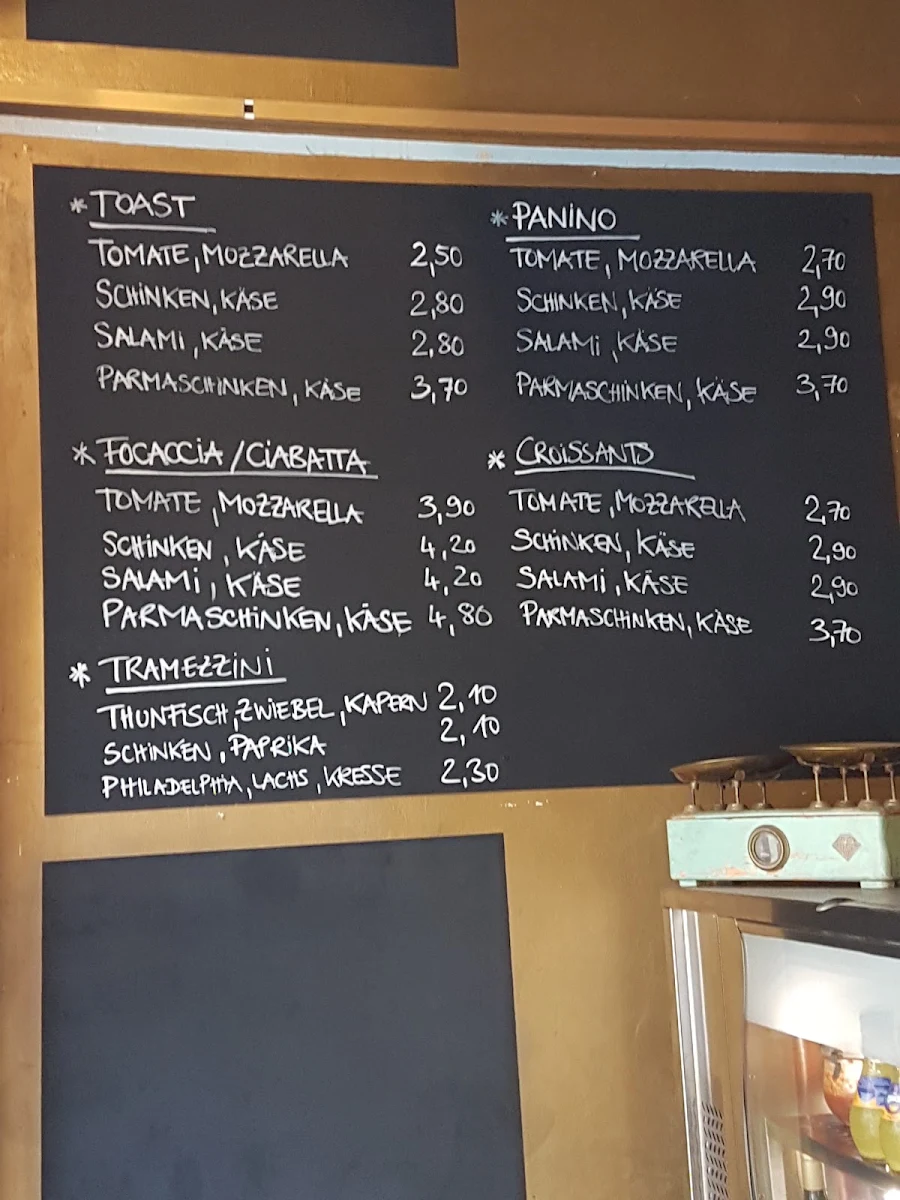 * TOAST
TOMATE, MOZZARELLA 2,50
SCHINKEN, KÄSE 2,80
SALAMI, KÄSE 2,80
PARMASCHINKEN, KÄSE 3,70
* PANINO
TOMATE, MOZZARELLA 2,70
SCHINKEN, KÄSE 2,90
SALAMI, KÄSE 2,90
PARMASCHINKEN, KÄSE 3,70
* FOCACCIA / CIABATTA
TOMATE, MOZZARELLA 3,90
SCHINKEN, KÄSE 4,20
SALAMI, KÄSE 4,20
PARMASCHINKEN, KÄSE 4,80
* CROISSANTS
TOMATE, MOZZARELLA 2,70
SCHINKEN, KÄSE 2,90
SALAMI, KÄSE 2,90
PARMASCHINKEN, KÄSE 3,70
* TRAMEZZINI
THUNFISCH, ZWIEBEL, KAPERN 2,10
SCHINKEN, PAPRIKA 2,10
PHILADELPHIA, LACHS, KRESSE 2,30